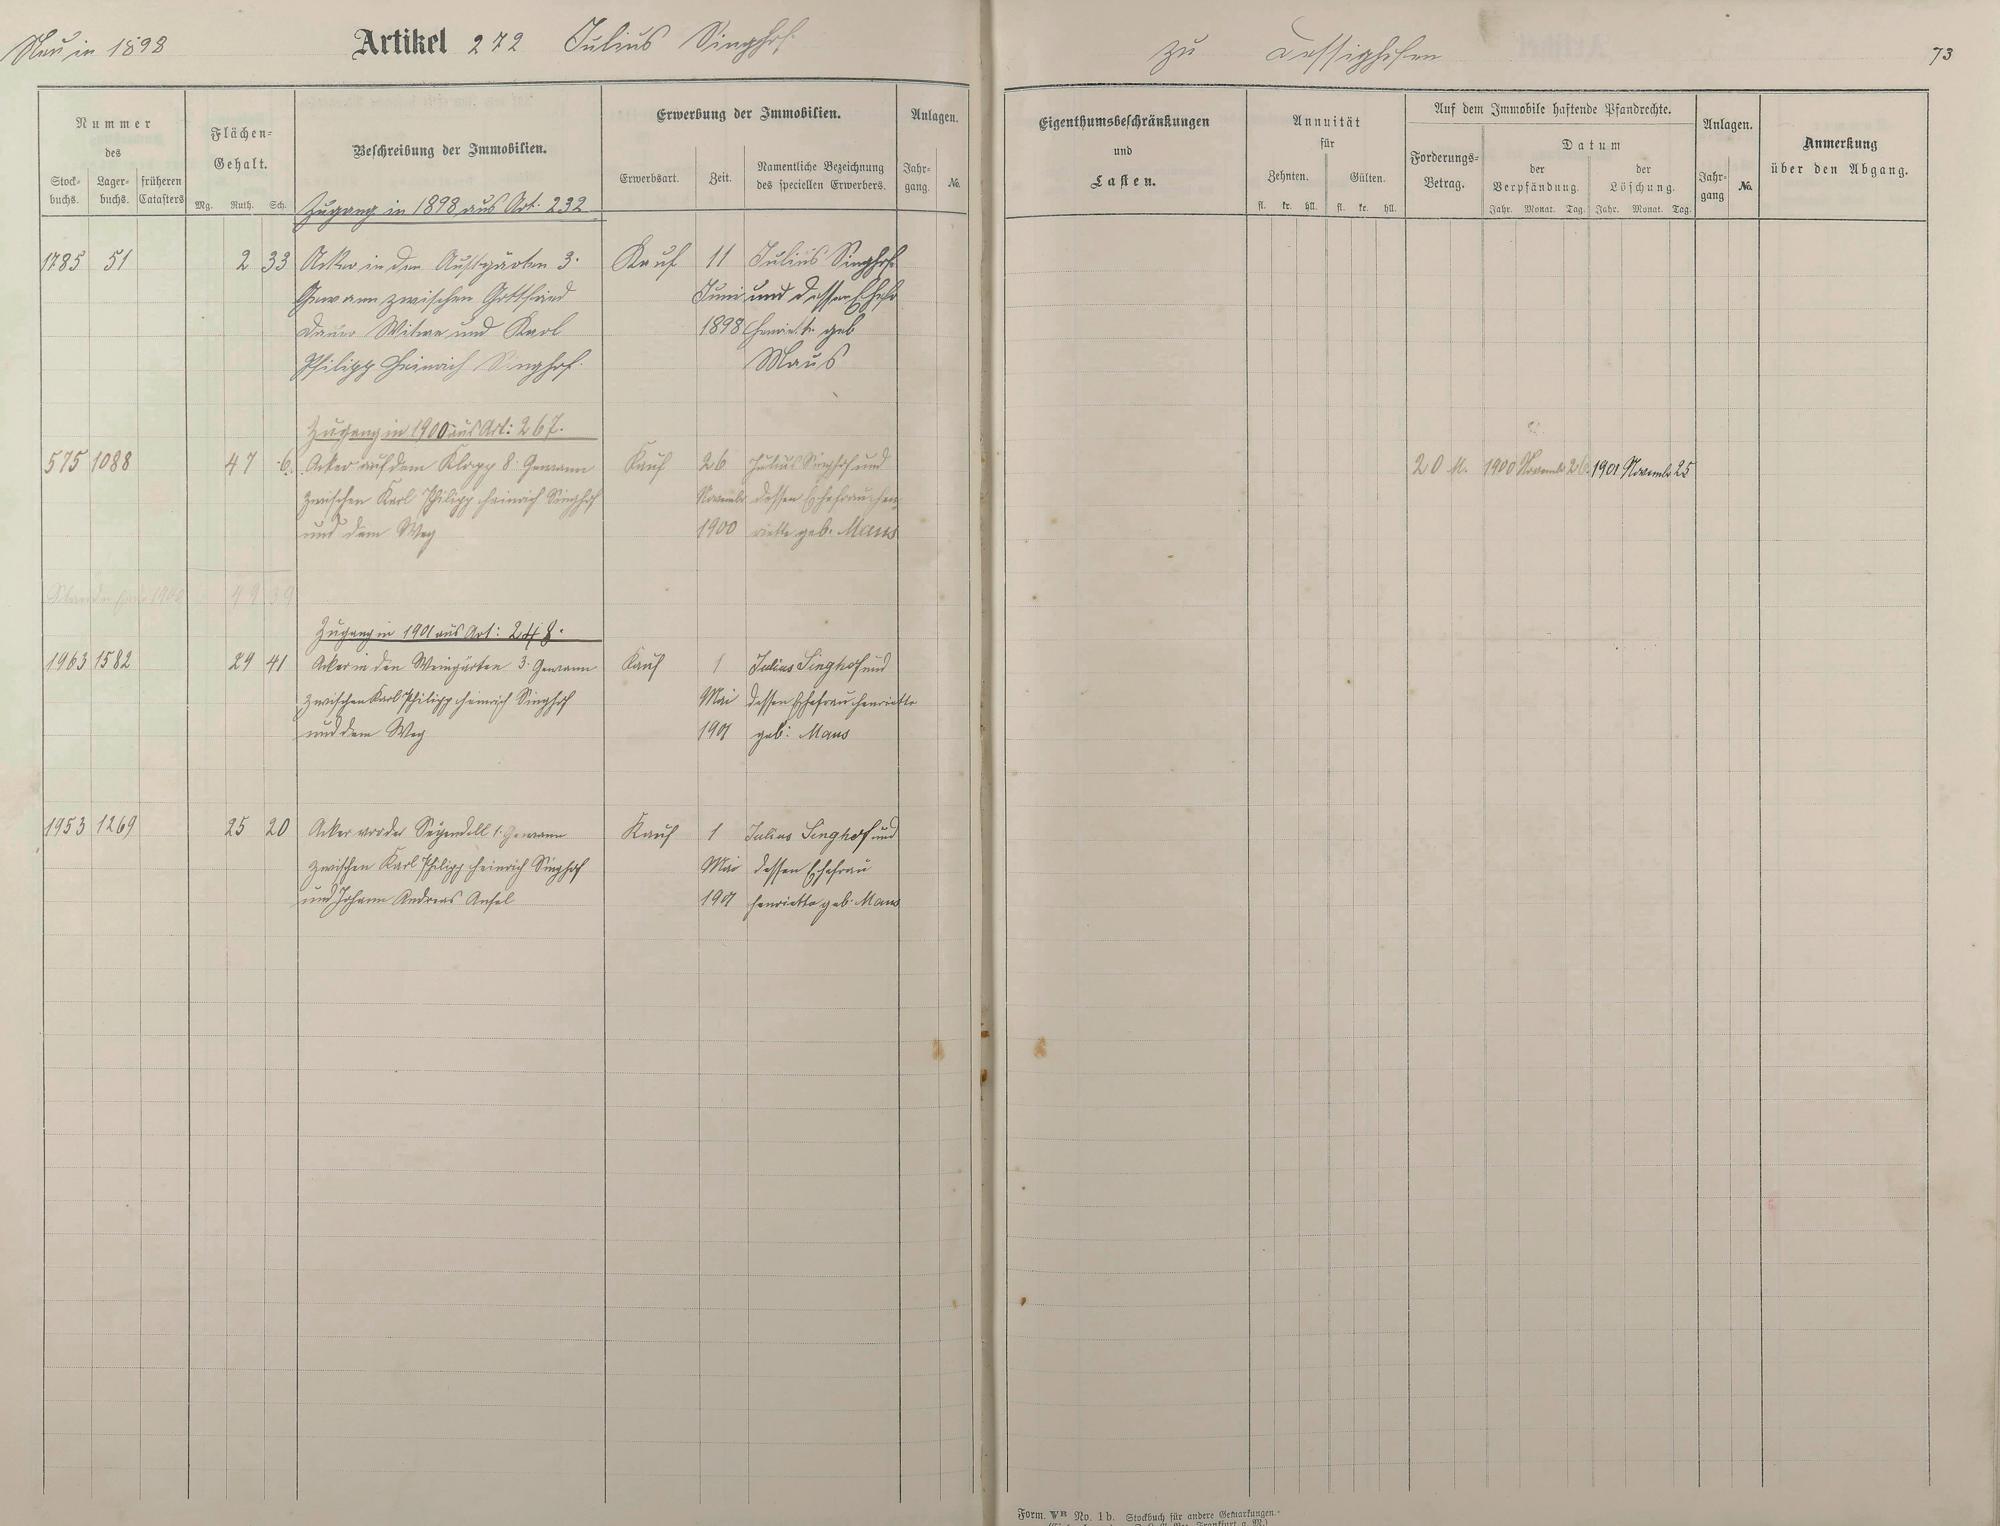 Neu in 1898
Artikel 272 Julius Singhof
zu Dessighofen
73
Nummer
des
Stock-
buchs.
Lager-
buchs.
früheren
Catasters
Flächen-
Gehalt.
Mg. Ruth. Sch.
Beschreibung der Immobilien.
Erwerbung der Immobilien.
Erwerbsart.
Zeit.
Namentliche Bezeichnung
des speciellen Erwerbers.
Anlagen.
Jahr-
gang.
No.
Eigenthumsbeschränkungen
und
Lasten.
Annuität
für
Zehnten.
Gülten.
fl. kr. hll. fl. kr. hll.
Auf dem Immobile haftende Pfandrechte.
Forderungs-
Betrag.
Datum
der
Verpfändung.
der
Löschung.
Jahr. Monat. Tag. Jahr. Monat. Tag.
Anlagen.
Jahr-
gang
No.
Anmerkung
über den Abgang.
Zugang in 1898 aus Art. 232
1785 51 2 33 Acker in den 3. Kauf 11 Julius Singhof
Gewann zwischen Gottfried Juni und dessen Ehefr
Witwe und Karl 1898 Henriette geb
Philipp Heinrich Singhof. Maus
Zugang in 1900 aus Art: 267.
575 1088 47 6. Acker auf dem Klopp 8. Gewann Kauf 26 Julius Singhof und 20 M. 1900 November 26. 1901 November 25
zwischen Karl Philipp Heinrich Singhof November dessen Ehefrau Hen
und dem Weg 1900 riette geb. Maus
1900 49 39
Zugang in 1901 aus Art: 248.
1963 1582 29 41 Acker in den Weingärten 3. Gewann Kauf 1 Julius Singhof und
zwischen Karl Philipp Heinrich Singhof Mai dessen Ehefrau Henriette
und dem Weg 1901 geb: Maus
1953 1269 25 20 Acker vor der 1. Gewann Kauf 1 Julius Singhof und
zwischen Karl Philipp Heinrich Singhof Mai dessen Ehefrau
und Johann Andreas 1901 Henriette geb. Maus
Form. WB No. 1b. Stockbuch für andere Gemarkungen.
Frankfurt a. M.)